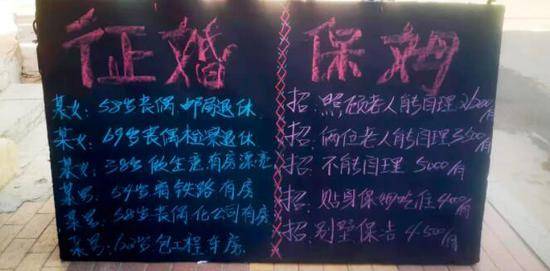 征婚
某女:58岁丧偶邮局退休
某女:69岁丧偶检察退休
某女:38岁做生意有房漂亮
某男:54岁有铁路有房
某男:58岁丧偶化公司有房
某男:62岁包工程车房
保姆
招:照顾老人能自理2600/月
招:俩位老人能自理3500/月
招:不能自理 5000/月
招:贴身保姆吃住4000/月
招:别墅保洁 4500/月